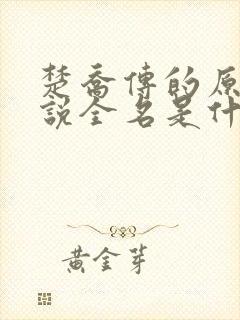 楚喬傳的原
説全名是什
黃金芽